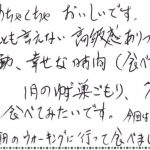 めちゃくちゃ おいしいです。
とも言えない 高級感あふ
動、幸せな時間（食べ
1月のねず巣ごもり、
食べてみたいです。今回は
朝のウォーキングに行って食べまし